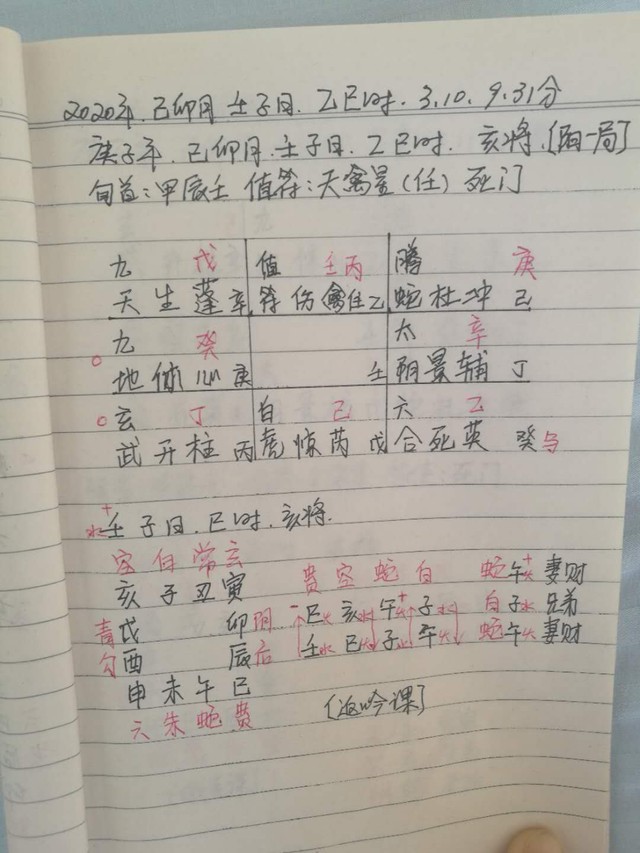 2020年.己卯月 壬子日.乙巳时.3.10.9.31分
庚子年.己卯月.壬子日.乙巳时. 亥将.(阳一局)
旬首:甲辰壬 值符:天禽星(任)死门
九 戊 值 壬丙 腾 庚
天生蓬辛 符伤禽任乙 蛇杜冲己
九 癸 太 辛
地休心庚 壬 阴景辅丁
玄 丁 白 己 六 乙
武开柱丙 虎惊芮戊 合死英癸马
水+壬子日.巳时.亥将.
空白常玄 贵空蛇白 蛇午+火妻财
亥子丑寅 巳火亥水午+火子水 白子水兄弟
青戌 卯阴 壬水巳火子水午火 蛇午火妻财
勾酉 辰后
申未午巳 (返吟课)
六朱蛇贵